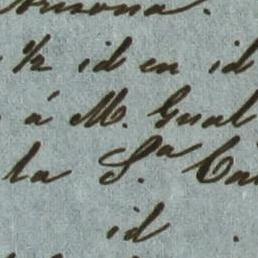 ½ id en id
á M. Gual
la S.ª Ca
id